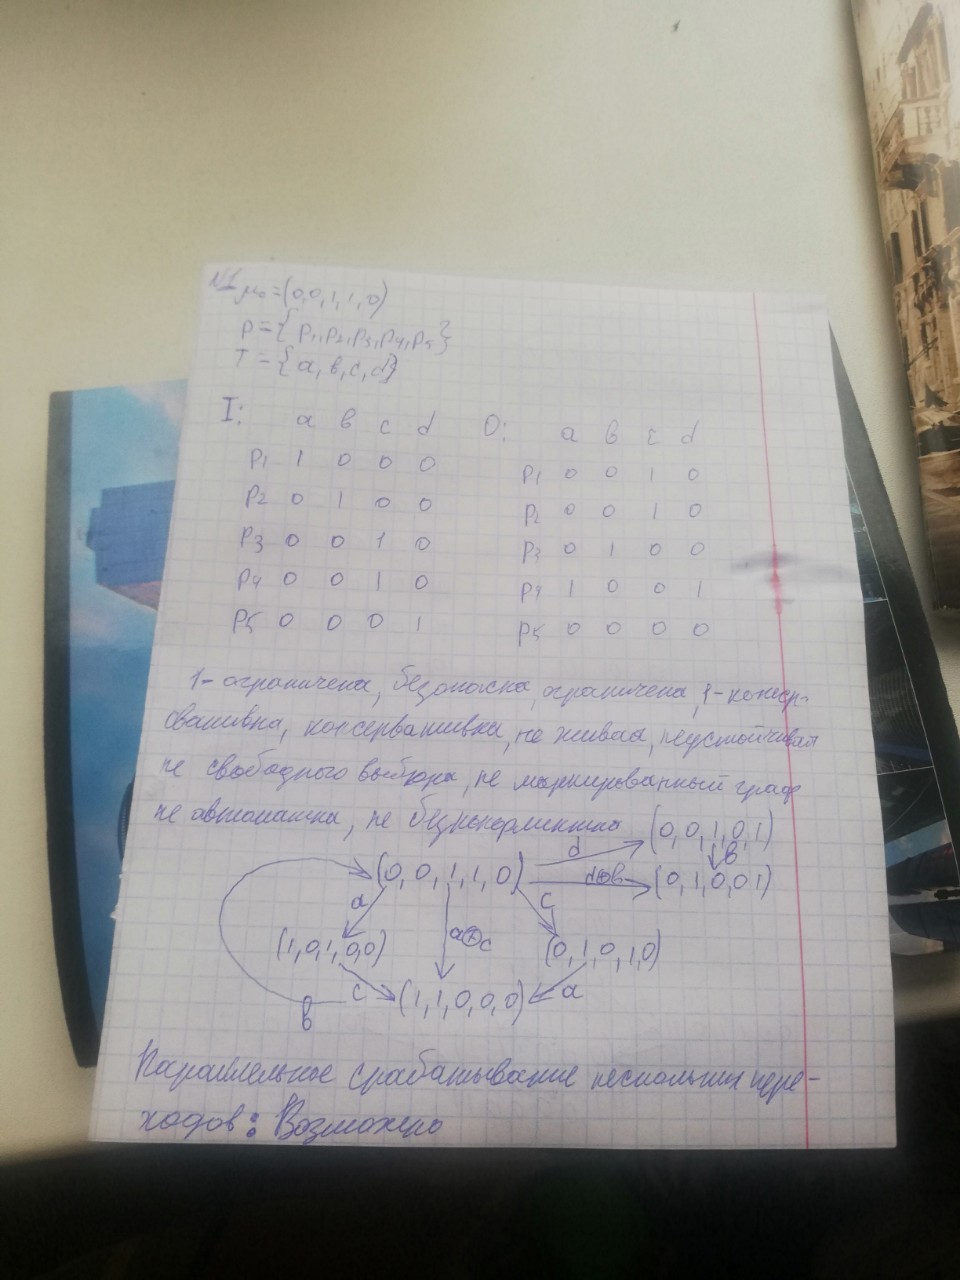 №1 μ₀ = (0,0,1,1,0)
P = { P₁, P₂, P₃, P₄, P₅ }
T = { a, в, c, d }
I: а в c d O: а в c d
P1 1 0 0 0 P1 0 0 1 0
P2 0 1 0 0 P2 0 0 1 0
P3 0 0 1 0 P3 0 1 0 0
P4 0 0 1 0 P4 1 0 0 1
P5 0 0 0 1 P5 0 0 0 0
1- ограничена, безопасна, ограничена, 1- консер-
вативна, консервативна, не живая, неустойчивая
не свободного выбора, не маркированный граф
не автоматна, не бесконфликтна (0,0,1,0,1)
d в
(0,0,1,1,0) d⊕в (0,1,0,0 1)
a a⊕c c
(1,0,1,0,0) (0,1,0,1,0)
в c (1,1,0,0,0) a
Параллельное срабатывание нескольких пере-
ходов: Возможно